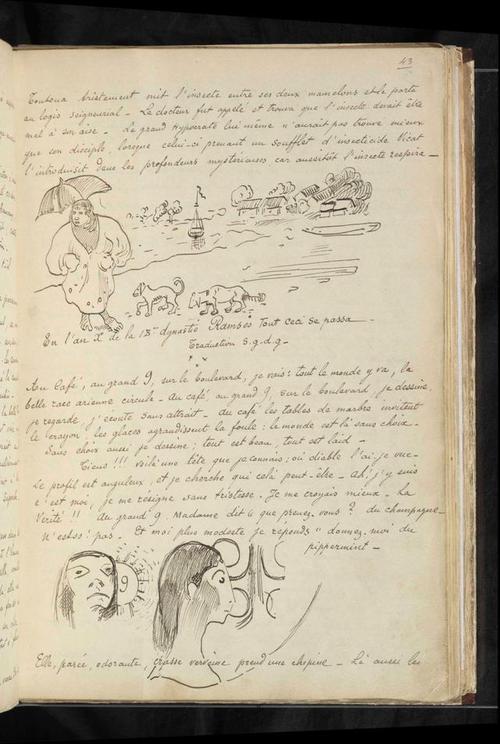 43
Toutoua tristement mit l'insecte entre ses deux mamelons et le porta
au logis seigneurial - Le docteur fut appelé et trouva que l'insecte devait être
mal à son aise. Le grand Hypocrate lui même n'aurait pas trouvé mieux
que son disciple lorsque celui-ci prenant un soufflet d'insecticide Vicat
l'introduisit dans les profondeurs mystérieuses car aussitôt l'insecte respire -
En l'an X de la 13me dynastie Ramsès tout ceci se passa -
Traduction s.g.d.g -
Au Café, au grand 9, sur le boulevard, je vais: tout le monde y va, la
belle race arienne circule - Au café, au grand 9, sur le boulevard, je dessine,
je regarde, j'écoute sans attrait - Au café les tables de marbre invitent
le crayon, les glaces agrandissent la foule: le monde est là sans choix -
Sans choix aussi je dessine; tout est beau, tout est laid -
Tiens!!! Voilà une tête que je connais; où diable l'ai-je vue -
Le profil est anguleux, et je cherche qui celà peut-être - Ah! j'y suis
c'est moi, je me résigne sans tristesse. Je me croyais mieux - La
Vérité!! Au grand 9 Madame dit "que prenez-vous? du champagne -
N'est-ce pas - Et moi plus modeste je réponds "donnez-moi du
pippermint -
Elle, parée, odorante, crasse verveine prend une chopine - Là aussi les